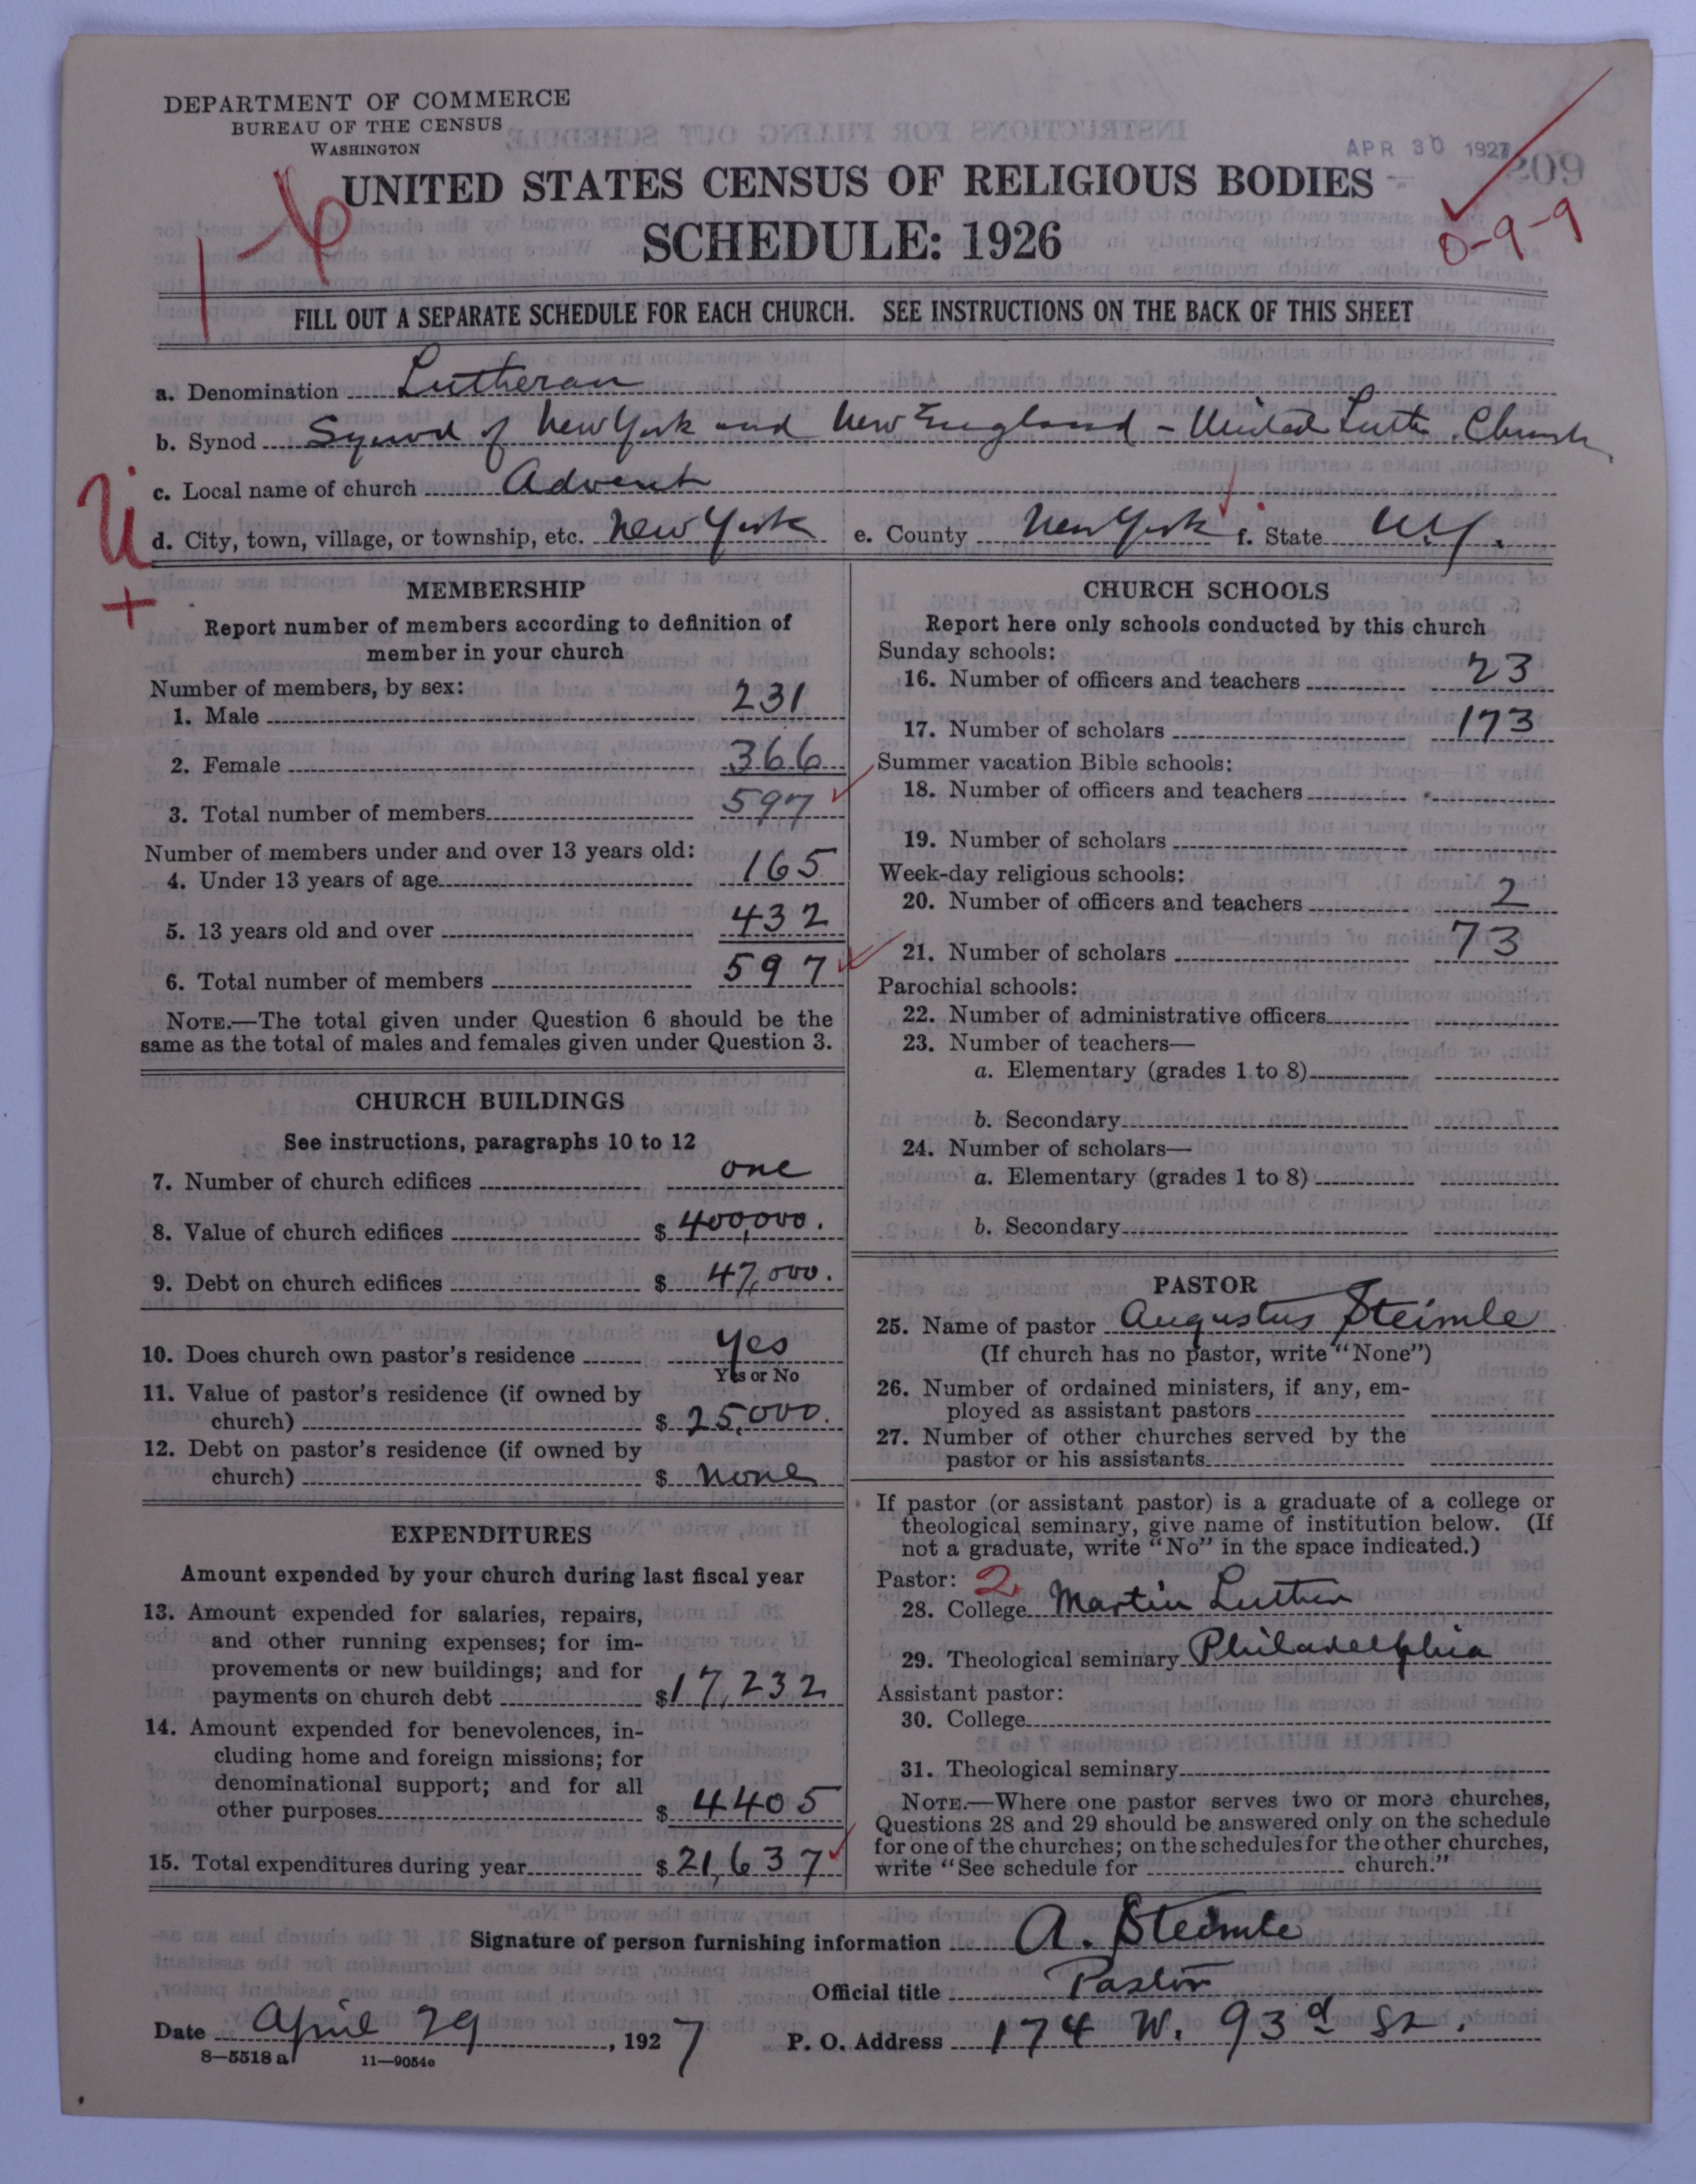 DEPARTMENT OF COMMERCE
BUREAU OF THE CENSUS
WASHINGTON
APR 30 1927
209
UNITED STATES CENSUS OF RELIGIOUS BODIES
SCHEDULE: 1926
0-9-9
FILL OUT A SEPARATE SCHEDULE FOR EACH CHURCH. SEE INSTRUCTIONS ON THE BACK OF THIS SHEET
a. Denomination Lutheran
b. Synod Synod of New York and New England - United Luth. Church
c. Local name of church Advent
d. City, town, village, or township, etc. New York e. County New York f. State N.Y.
MEMBERSHIP
Report number of members according to definition of
member in your church
Number of members, by sex:
1. Male 231
2. Female 366
3. Total number of members 597
Number of members under and over 13 years old:
4. Under 13 years of age 165
5. 13 years old and over 432
6. Total number of members 597
NOTE.—The total given under Question 6 should be the
same as the total of males and females given under Question 3.
CHURCH BUILDINGS
See instructions, paragraphs 10 to 12
7. Number of church edifices one
8. Value of church edifices $ 400,000.
9. Debt on church edifices $ 47,000.
10. Does church own pastor's residence Yes
Yes or No
11. Value of pastor's residence (if owned by
church) $ 25,000.
12. Debt on pastor's residence (if owned by
church) $ none
EXPENDITURES
Amount expended by your church during last fiscal year
13. Amount expended for salaries, repairs,
and other running expenses; for im-
provements or new buildings; and for
payments on church debt $ 17,232
14. Amount expended for benevolences, in-
cluding home and foreign missions; for
denominational support; and for all
other purposes $ 4405
15. Total expenditures during year $ 21,637
CHURCH SCHOOLS
Report here only schools conducted by this church
Sunday schools:
16. Number of officers and teachers 23
17. Number of scholars 173
Summer vacation Bible schools:
18. Number of officers and teachers
19. Number of scholars
Week-day religious schools:
20. Number of officers and teachers 2
21. Number of scholars 73
Parochial schools:
22. Number of administrative officers
23. Number of teachers—
a. Elementary (grades 1 to 8)
b. Secondary
24. Number of scholars—
a. Elementary (grades 1 to 8)
b. Secondary
PASTOR
25. Name of pastor Augustus Steimle
(If church has no pastor, write "None")
26. Number of ordained ministers, if any, em-
ployed as assistant pastors
27. Number of other churches served by the
pastor or his assistants
If pastor (or assistant pastor) is a graduate of a college or
theological seminary, give name of institution below. (If
not a graduate, write "No" in the space indicated.)
Pastor: 2
28. College Martin Luther
29. Theological seminary Philadelphia
Assistant pastor:
30. College
31. Theological seminary
NOTE.—Where one pastor serves two or more churches,
Questions 28 and 29 should be answered only on the schedule
for one of the churches; on the schedules for the other churches,
write "See schedule for church."
Signature of person furnishing information A. Steimle
Official title Pastor
Date April 29, 1927 P. O. Address 174 W. 93d St.
8—5518 a 11—9054e